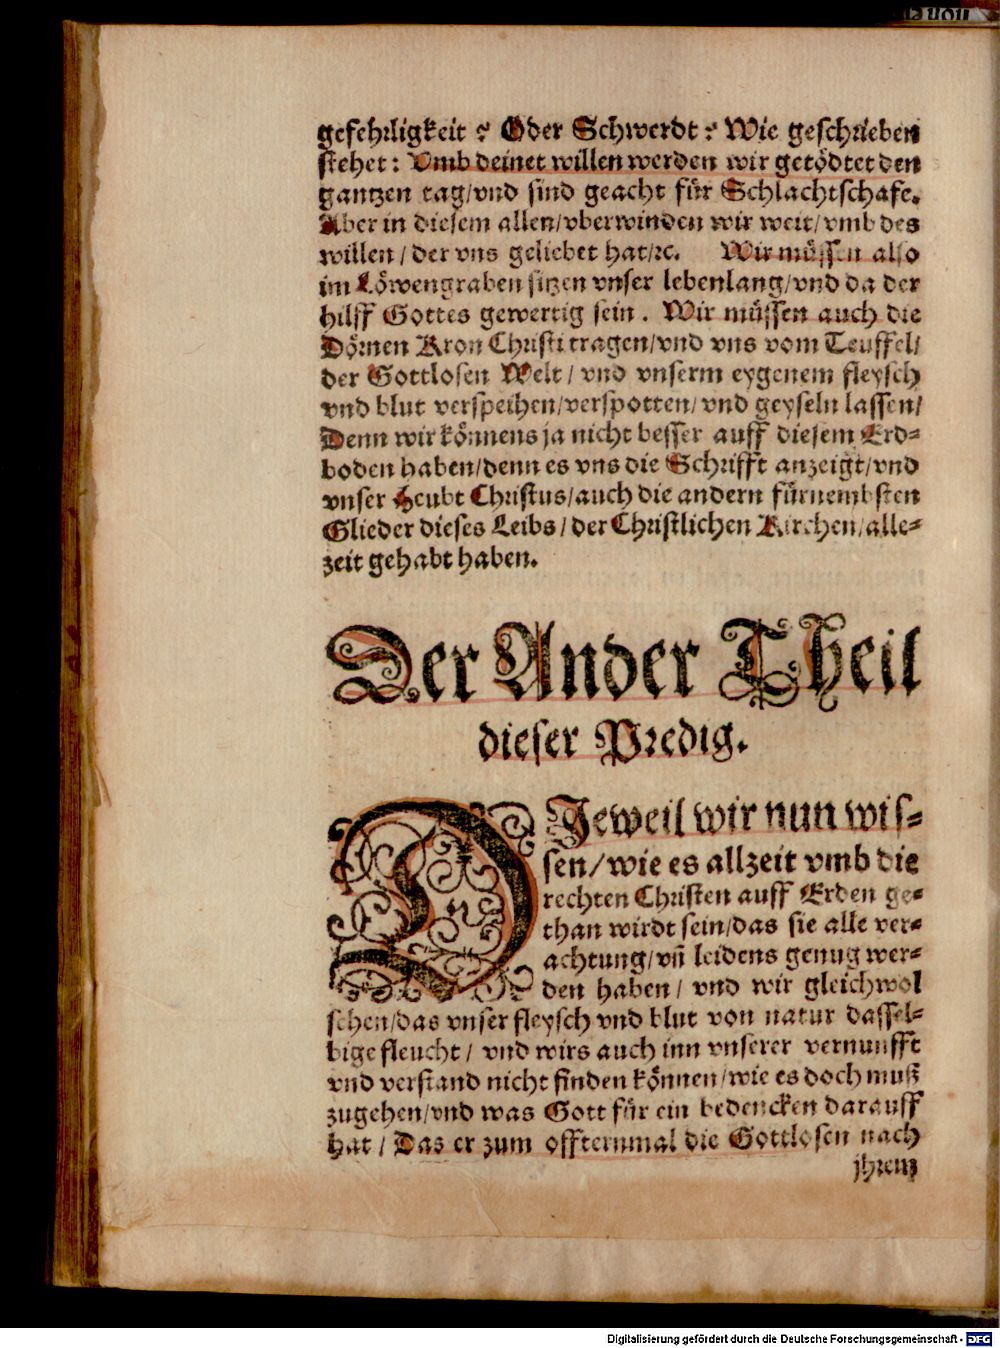 gefehrligkeit ? Oder Schwerdt ? Wie geschrieben
stehet : Vmb deinet willen werden wir getödtet den
gantzen tag/vnd sind geacht für Schlachtschafe.
Aber in diesem allen/vberwinden wir weit/vmb des
willen/ der vns geliebet hat/ꝛc. Wir müssen also
im Löwengraben sitzen vnser lebenlang/vnd da der
hilff Gottes gewertig sein . Wir müssen auch die
Dörnen Kron Christi tragen/vnd vns vom Teuffel/
der Gottlosen Welt/ vnd vnserm eygenem fleysch
vnd blut verspeihen/verspotten/ vnd geyseln lassen/
Denn wir können s ja nicht besser auff diesem Erd⸗
boden haben/denn es vns die Schrifft anzeigt/vnd
vnser Heubt Christus/auch die andern fürnembsten
Glieder dieses Leibs/ der Christlichen Kirchen/alle⸗
zeit gehabt haben.
Der Ander Theil
dieser Predig.
DJeweil wir nun wis⸗
sen/wie es allzeit vmb die
rechten Christen auff Erden ge⸗
than wirdt sein/das sie alle ver⸗
achtung/vñ leidens genug wer⸗
den haben/ vnd wir gleichwol
sehen/das vnser fleysch vnd blut von natur dassel⸗
bige fleucht/ vnd wirs auch inn vnserer vernunfft
vnd verstand nicht finden können/wie es doch muß
zugehen/vnd was Gott für ein bedencken darauff
hat/ Das er zum offternmal die Gottlosen nach
jhrem
Digitalisierung gefördert durch die Deutsche Forschungsgemeinschaft - DFG